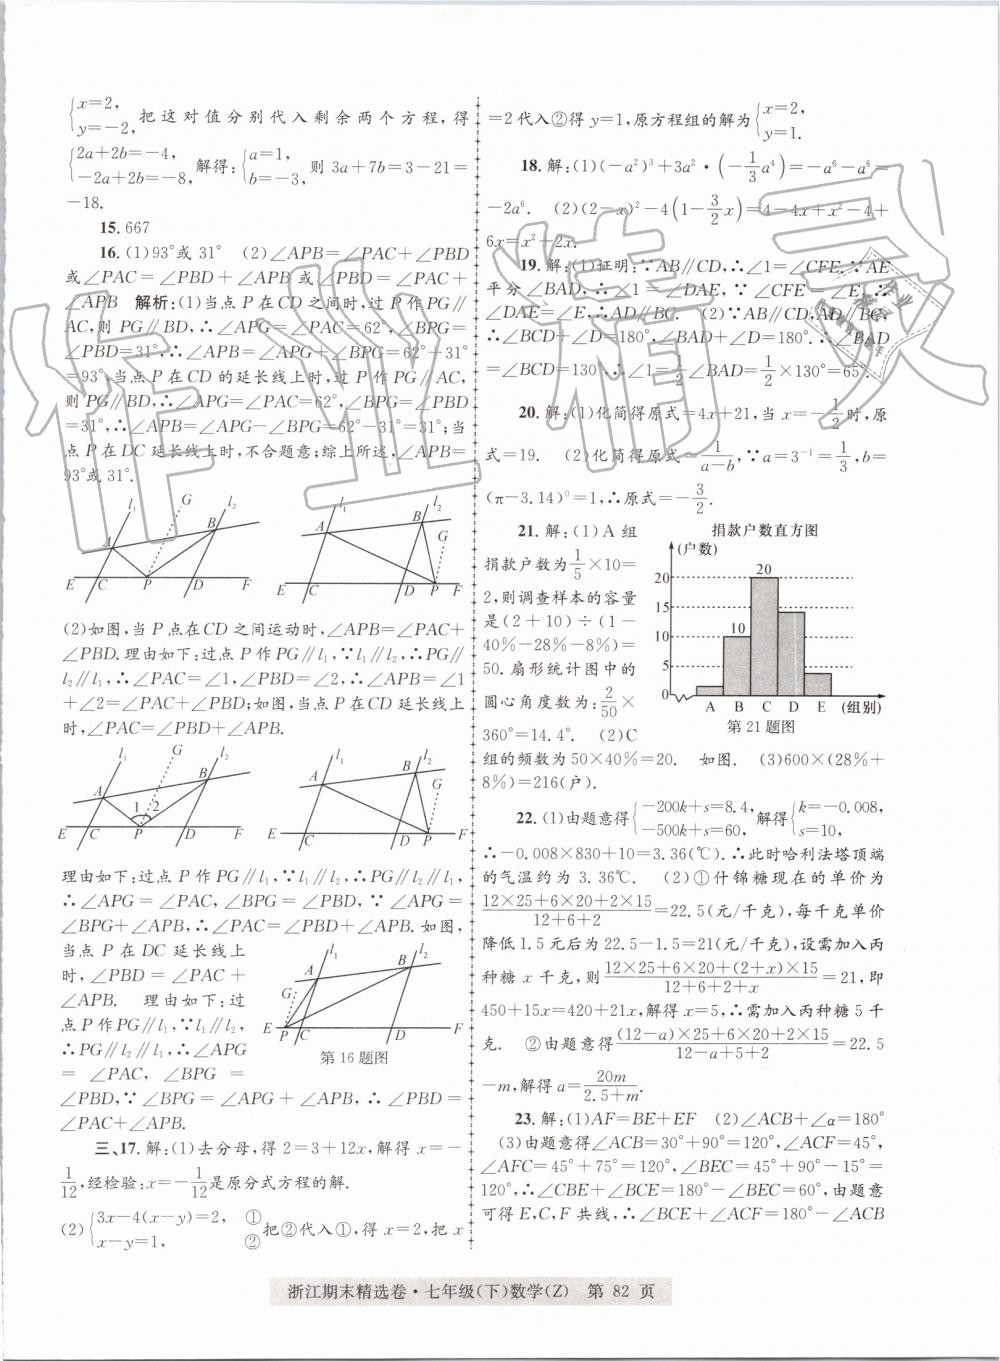 {x=2, y=-2, 把这对值分别代入剩余两个方程,得
{2a+2b=-4, -2a+2b=-8, 解得:{a=1, b=-3, 则 3a+7b=3-21=
-18.
15.667
16.(1)93°或 31° (2)∠APB=∠PAC+∠PBD
或∠PAC=∠PBD+∠APB 或∠PBD=∠PAC+
∠APB 解析:(1)当点 P 在 CD 之间时,过 P 作 PG∥
AC,则 PG∥BD,∴∠APG=∠PAC=62°,∠BPG=
∠PBD=31°,∴∠APB=∠APG+∠BPG=62°+31°
=93°;当点 P 在 CD 的延长线上时,过 P 作 PG∥AC,
则 PG∥BD,∴∠APG=∠PAC=62°,∠BPG=∠PBD
=31°,∴∠APB=∠APG-∠BPG=62°-31°=31°;当
点 P 在 DC 延长线上时,不合题意;综上所述,∠APB=
93°或 31°.
l₁ G B l₂ A E C P D F
l₁ A B l₂ G E C D P F
(2)如图,当 P 点在CD 之间运动时,∠APB=∠PAC+
∠PBD.理由如下:过点 P 作PG∥l₁,∵l₁∥l₂,∴PG∥
l₂∥l₁,∴∠PAC=∠1,∠PBD=∠2,∴∠APB=∠1
+∠2=∠PAC+∠PBD;如图,当点 P 在CD延长线上
时,∠PAC=∠PBD+∠APB.
l₁ G B l₂ A 1 2 E C P D F
l₁ A B l₂ G E C D P F
理由如下:过点 P 作PG∥l₁,∵l₁∥l₂,∴PG∥l₂∥l₁,
∴∠APG=∠PAC,∠BPG=∠PBD,∵∠APG=
∠BPG+∠APB,∴∠PAC=∠PBD+∠APB.如图,
当点 P 在 DC 延长线上
时,∠PBD=∠PAC+
∠APB. 理由如下:过
点 P 作PG∥l₁,∵l₁∥l₂,
∴PG∥l₂∥l₁,∴∠APG
=∠PAC,∠BPG=
l₁ B l₂ A G E P C D F
第 16 题图
∠PBD,∵∠BPG=∠APG+∠APB,∴∠PBD=
∠PAC+∠APB.
三、17.解:(1)去分母,得 2=3+12x,解得 x=-
1/12,经检验:x=-1/12是原分式方程的解.
(2){3x-4(x-y)=2,① x-y=1,② 把②代入①,得 x=2,把 x
=2代入②得 y=1,原方程组的解为{x=2, y=1.
18.解:(1)(-a²)³+3a²·(-1/3a⁴)=-a⁶-a⁶=
-2a⁶. (2)(2-x)²-4(1-3/2x)=4-4x+x²-4+
6x=x²+2x.
19.解:(1)证明:∵AB∥CD,∴∠1=∠CFE,∵AE
平分∠BAD,∴∠1=∠DAE,∵∠CFE=∠E,∴
∠DAE=∠E,∴AD∥BC. (2)∵AB∥CD,AD∥BC,
∴∠BCD+∠D=180°,∠BAD+∠D=180°,∴∠BAD
=∠BCD=130°,∴∠1=1/2∠BAD=1/2×130°=65°.
20.解:(1)化简得原式=4x+21,当 x=-1/2时,原
式=19. (2)化简得原式=1/(a-b),∵a=3⁻¹=1/3,b=
(π-3.14)⁰=1,∴原式=-3/2.
21.解:(1)A 组
捐款户数为1/5×10=
2,则调查样本的容量
是(2+10)÷(1-
40%-28%-8%)=
50.扇形统计图中的
圆心角度数为:2/50×
360°=14.4°. (2)C
捐款户数直方图
(户数)
20 15 10 5
10 20
A B C D E (组别)
第 21 题图
组的频数为 50×40%=20. 如图. (3)600×(28%+
8%)=216(户).
22.(1)由题意得{-200k+s=8.4, -500k+s=60, 解得{k=-0.008, s=10,
∴-0.008×830+10=3.36(℃).∴此时哈利法塔顶端
的气温约为 3.36℃. (2)①什锦糖现在的单价为
(12×25+6×20+2×15)/(12+6+2)=22.5(元/千克),每千克单价
降低 1.5 元后为 22.5-1.5=21(元/千克),设需加入丙
种糖 x 千克,则(12×25+6×20+(2+x)×15)/(12+6+2+x)=21,即
450+15x=420+21x,解得 x=5,∴需加入丙种糖 5 千
克. ②由题意得((12-a)×25+6×20+2×15)/(12-a+5+2)=22.5
-m,解得 a=20m/(2.5+m).
23.解:(1)AF=BE+EF (2)∠ACB+∠α=180°
(3)由题意得∠ACB=30°+90°=120°,∠ACF=45°,
∠AFC=45°+75°=120°,∠BEC=45°+90°-15°=
120°,∴∠CBE+∠BCE=180°-∠BEC=60°,由题意
可得 E,C,F 共线,∴∠BCE+∠ACF=180°-∠ACB
浙江期末精选卷·七年级(下)数学(Z) 第 82 页
作业精灵